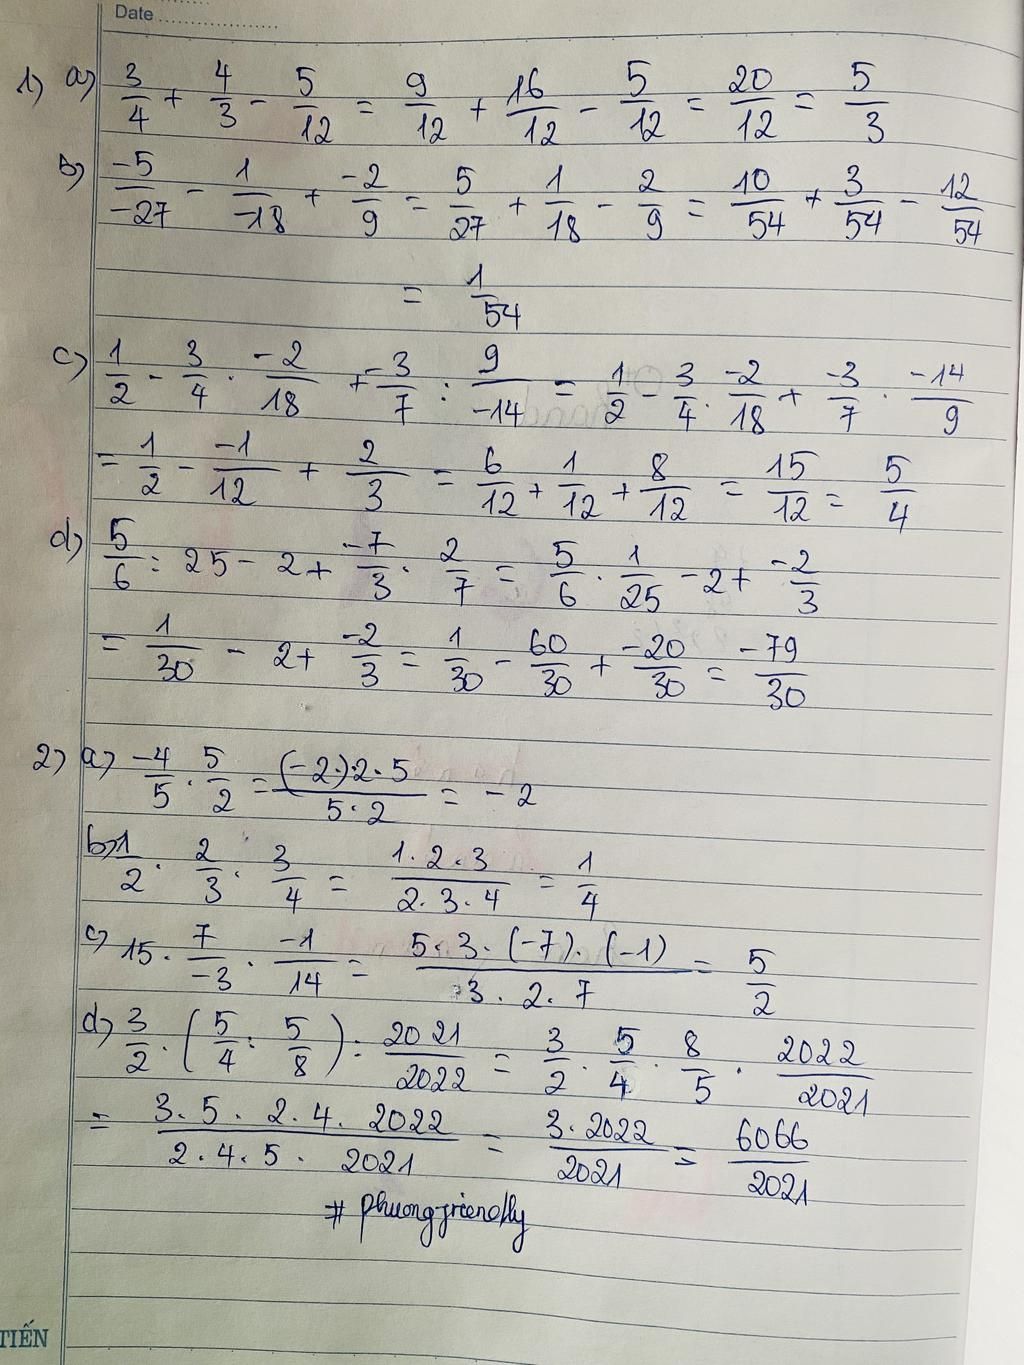 Date ....................
1) a) 3/4 + 4/3 - 5/12 = 9/12 + 16/12 - 5/12 = 20/12 = 5/3
b) -5/-27 - 1/-18 + -2/9 = 5/27 + 1/18 - 2/9 = 10/54 + 3/54 - 12/54
= 1/54
c) 1/2 - 3/4 . -2/18 + -3/7 : 9/-14 = 1/2 - 3/4 . -2/18 + -3/7 . -14/9
= 1/2 - -1/12 + 2/3 = 6/12 + 1/12 + 8/12 = 15/12 = 5/4
d) 5/6 : 25 - 2 + -7/3 . 2/7 = 5/6 . 1/25 - 2 + -2/3
= 1/30 - 2 + -2/3 = 1/30 - 60/30 + -20/30 = -79/30
2) a) -4/5 . 5/2 = (-2).2.5/5.2 = -2
b) 1/2 . 2/3 . 3/4 = 1.2.3/2.3.4 = 1/4
c) 15 . 7/-3 . -1/14 = 5.3.(-7).(-1)/3.2.7 = 5/2
d) 3/2 . (5/4 : 5/8) : 2021/2022 = 3/2 . 5/4 . 8/5 . 2022/2021
= 3.5.2.4.2022/2.4.5.2021 = 3.2022/2021 = 6066/2021
# phuongfriendly
TIẾN